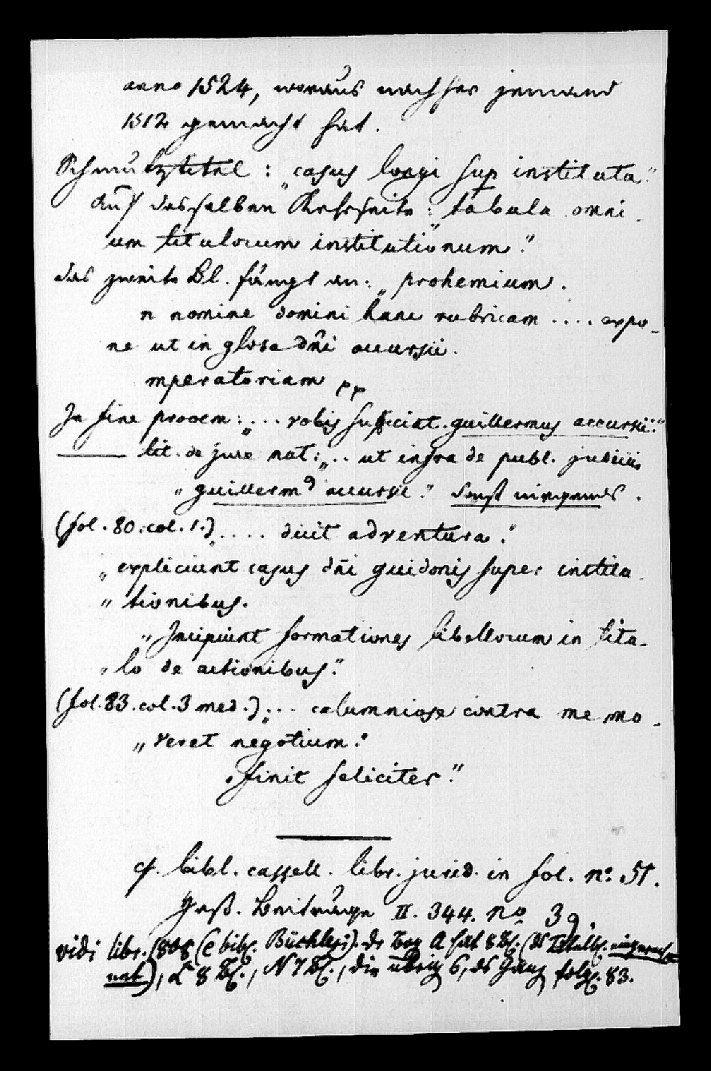 anno 1524, woraus nachher jemand
1512 gemacht hat.
Schmutztitel : casus longi sup instituta."
Auf desselben Kehrseite : "tabula omni-
um titulorum institutionum."
das zweite Bl. fängt an: "prohemium.
n nomine domini hanc rubricam .... expo-
ne ut in glosa dñi accursii.
mperatoriam pp
In fine prooem: "... vobis sufficiat. guillermus accursii."
— tit. de jure nat: "... ut infra de publ. judiciis
"guillerm9 accursii." Sonst nirgends.
(fol. 80. col. 1.) ".... dicit adventura."
"expliciunt casus dñi guidonis super institu-
"tionibus.
"Incipiunt formationes libellorum in titu-
"lo de actionibus."
(fol. 83. col. 3 med.) "... calumniose contra me mo-
"veret negotium."
"finit feliciter."
cf. bibl. cassell. libr. jurid. in fol. n°. 51.
Heß. Beiträge II. 344. N° 39.
vidi libr. 1808 (e bibl. Büchleri). der Bog A hat 8 Bl. (ds Titelbl. eingerech-
net), L 8 Bl., N 7 Bl., die übrig 6, ds Ganz folg. 83.